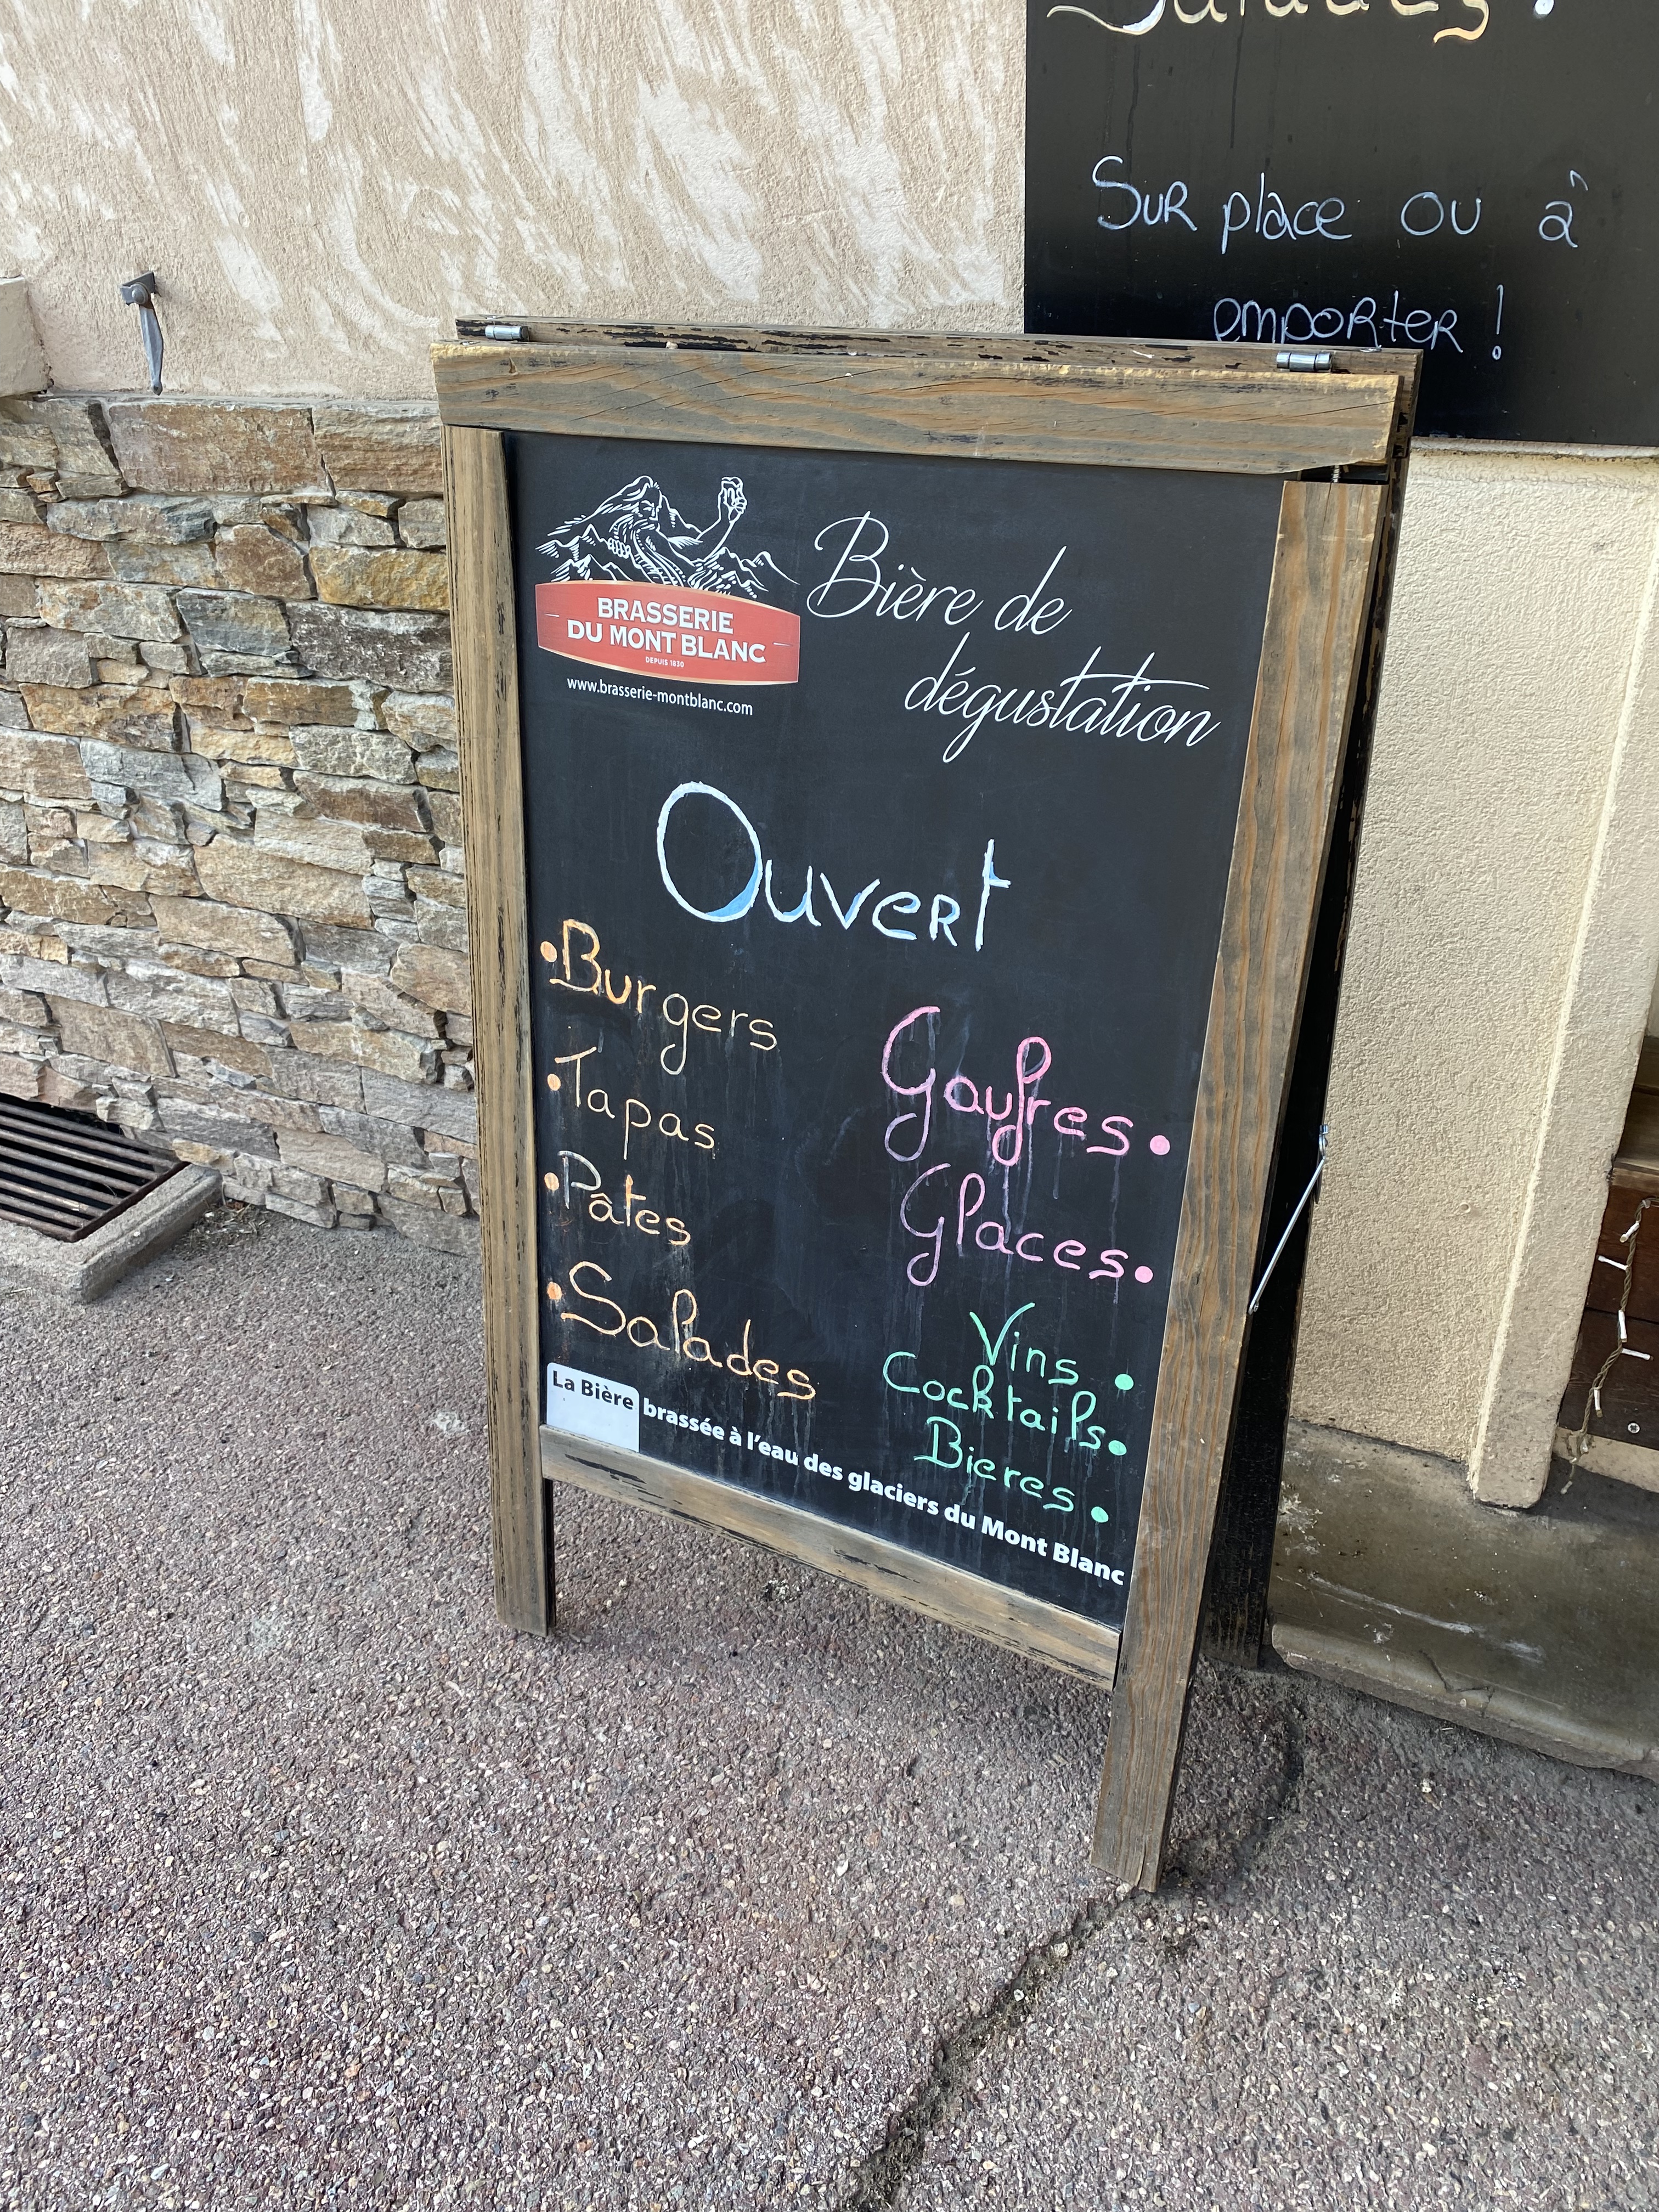 Salades !
Sur place ou à
emporter !
BRASSERIE
DU MONT BLANC
DEPUIS 1830
www.brasserie-montblanc.com
Bière de
dégustation
Ouvert
• Burgers
• Tapas
• Pâtes
• Salades
Gaufres •
Glaces •
Vins •
Cocktails •
Bieres •
La Bière brassée à l'eau des glaciers du Mont Blanc